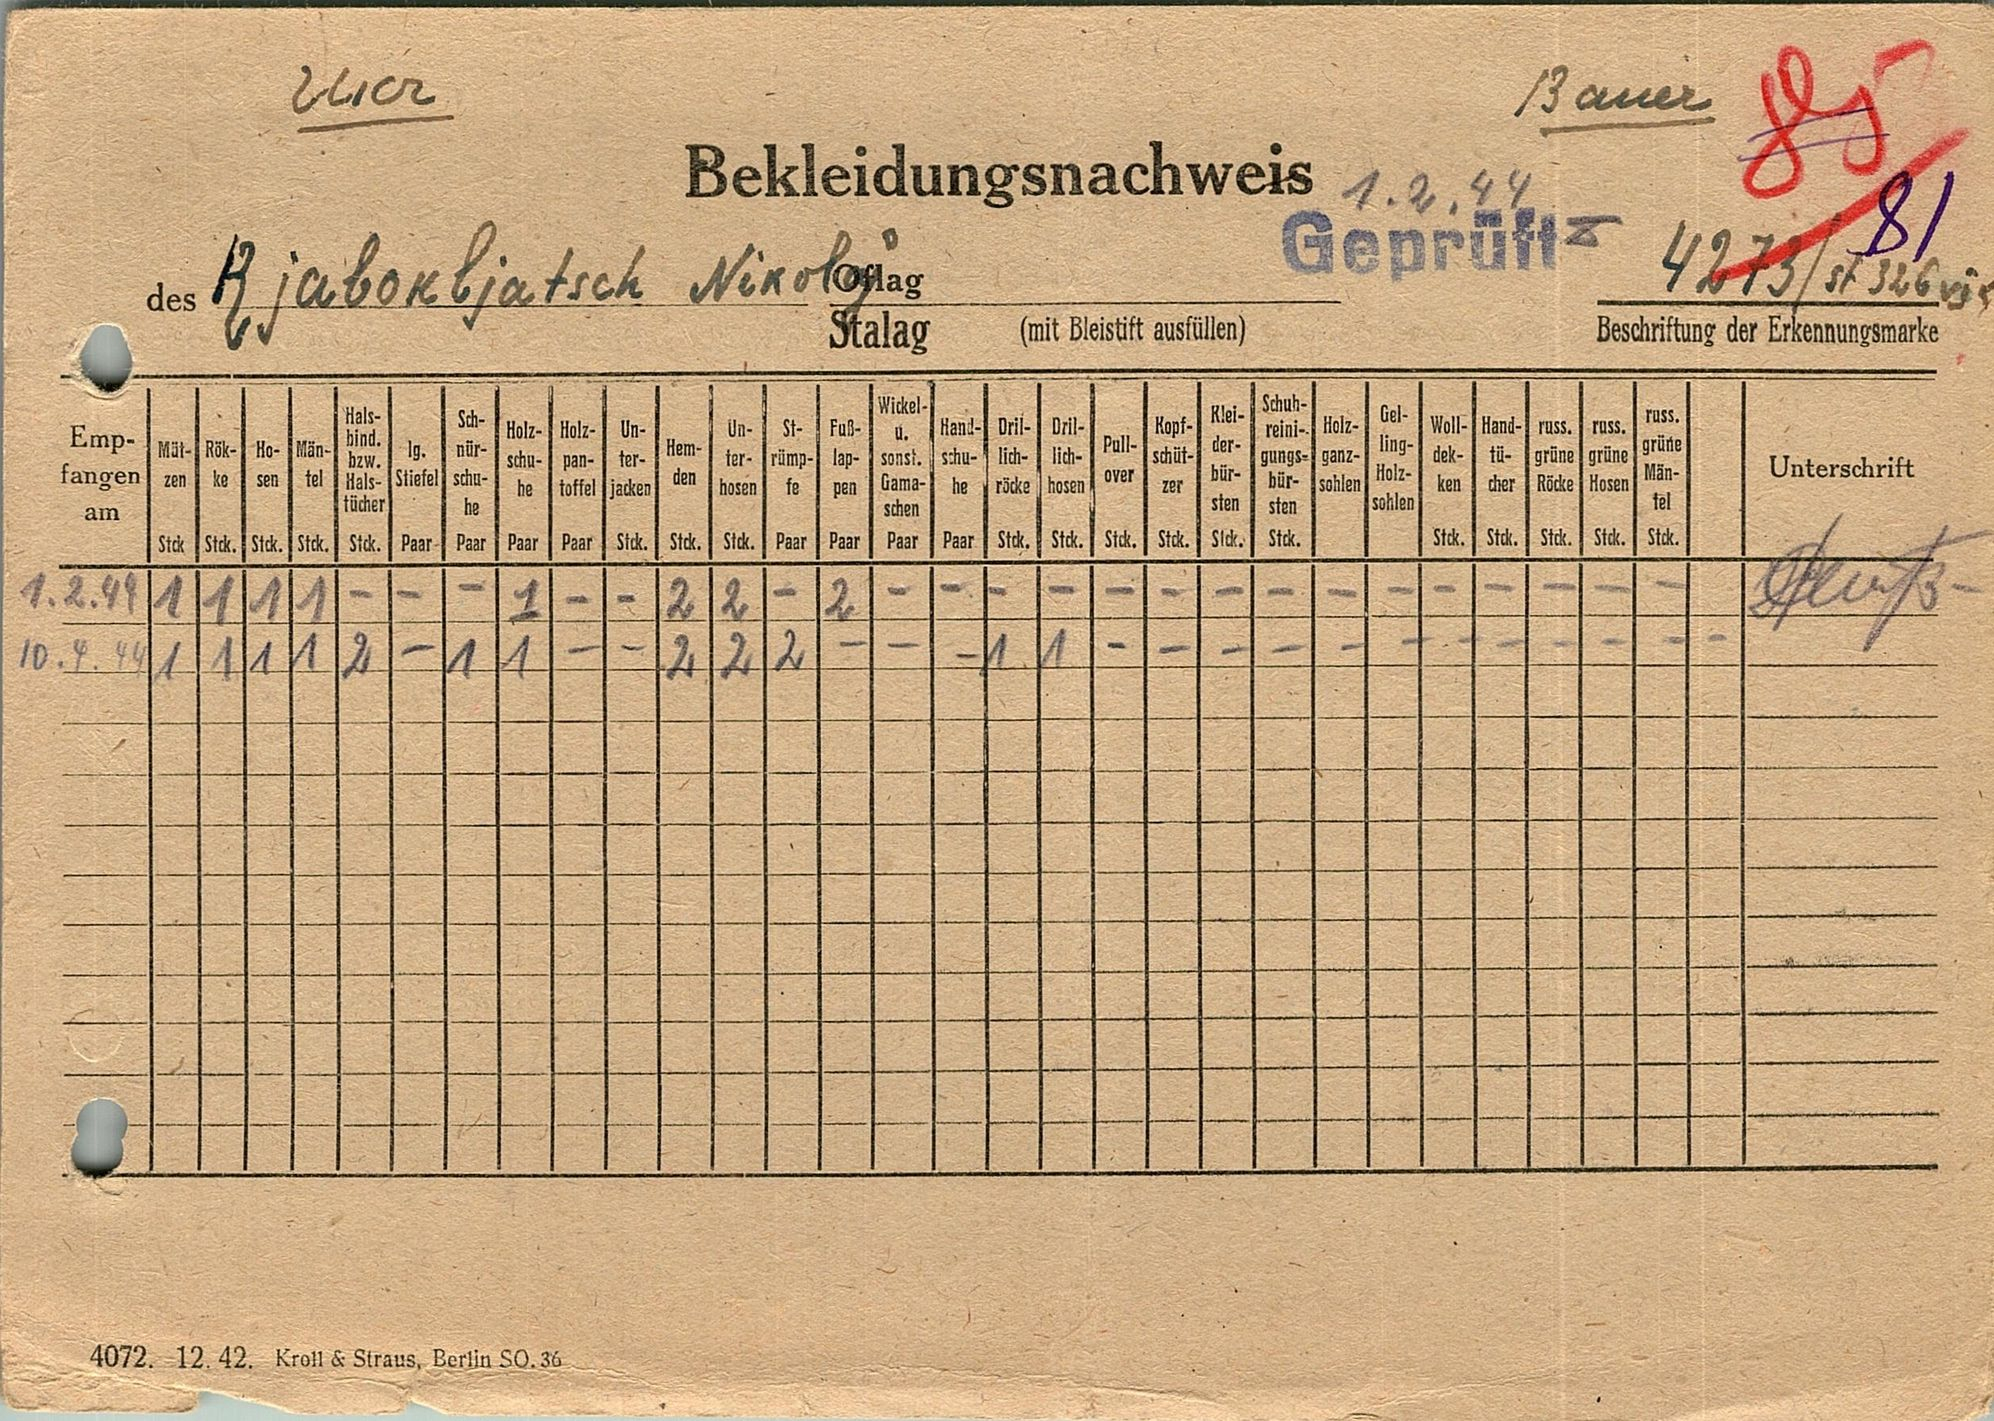 Ukr Bauer
Bekleidungsnachweis
1.2.44
Geprüft
81
des Rjabokljatsch Nikolaj Oflag
4273/ st 326
Stalag (mit Bleistift ausfüllen) Beschriftung der Erkennungsmarke
Emp-fangen am
Müt-zen Stck
Rök-ke Stck.
Ho-sen Stck.
Män-tel Stck.
Hals-bind. bzw. Hals-tücher Stck.
lg. Stiefel Paar
Sch-nür-schu-he Paar
Holz-schu-he Paar
Holz-pan-toffel Paar
Un-ter-jacken Stck.
Hem-den Stck.
Un-ter-hosen Stck.
St-rümp-fe Paar
Fuß-lap-pen Paar
Wickel- u. sonst. Gama-schen Paar
Hand-schu-he Paar
Dril-lich-röcke Stck.
Dril-lich-hosen Stck.
Pull-over Stck.
Kopf-schüt-zer Stck.
Klei-der-bür-sten Stck.
Schuh-reini-gungs-bür-sten Stck.
Holz-ganz-sohlen
Gel-ling-Holz-sohlen
Woll-dek-ken Stck.
Hand-tü-cher Stck.
russ. grüne Röcke Stck.
russ. grüne Hosen Stck.
russ. grüne Män-tel Stck.
Unterschrift
1.2.44 1 1 1 1 - - - 1 - - 2 2 - 2 - - - - - - - - - - - - - - -
10.4.44 1 1 1 1 2 - 1 1 - - 2 2 2 - - - 1 1 - - - - - - - - - - - -
4072. 12. 42. Kroll & Straus, Berlin SO. 36